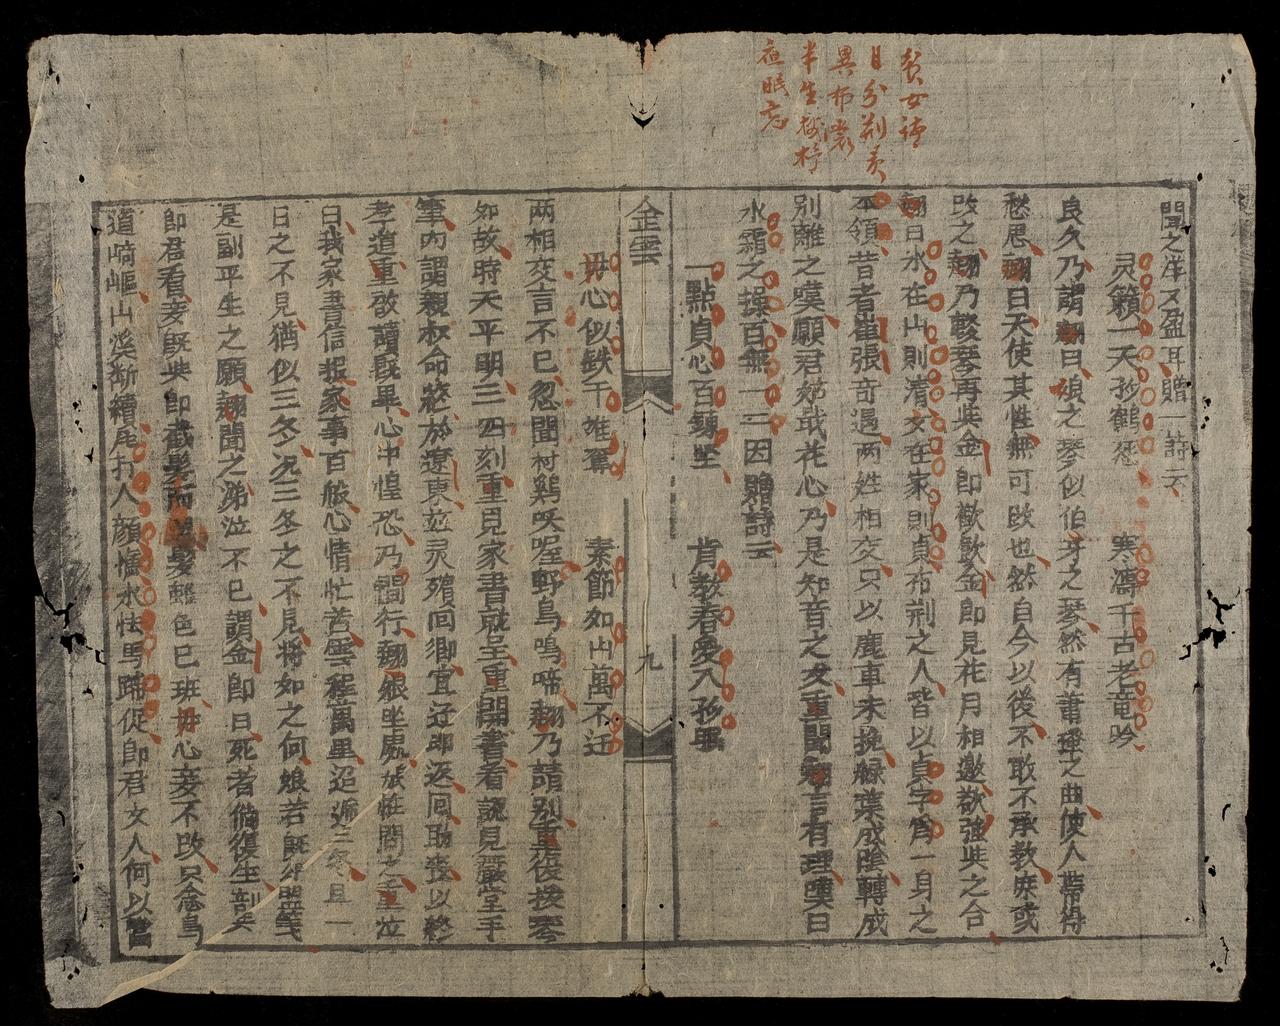 貧女詩
自分荊釵
異布裳
半生機杼
夜眠忘
聞之洋又盈耳贈一詩云
灵籟一天抄鶴怨 寒濤千古老竜吟
良久乃謂翹曰娘之琴似伯牙之琴然有書璮之曲使人帶得
愁思翹曰天使其性無可改也然自今以後不敢不承教庶或
改之翹乃鼓琴再奘金郎歡歆金郎見花月相邀欲強奘之合
翹曰水在山則清女在家則貞布荊之人皆以貞字爲一身之
本領昔者崔張奇遇两姓相交只以鹿車未挽綠葉成陰轉成
別離之嘆願君努哉花心乃是知音之友重聞翹言有理嘆曰
水霜之操百無一二因贈詩云
一點貞心百鍊坚 肯教春愛入抄眠
毋心似鉄千雄奪 素節如山萬不迁
金雲
九
两相交言不已忽聞村鷄咲喔野鳥鳴啼翹乃請別重後援琴
如故時天平明三四刻重見家書或呈重開書看認見嚴堂手
筆內謂親叔命終於遼東並灵殯回鄉宜迁即返同助喪以終
孝道重啟讀旣畢心中惶恐乃間行翹娘坐處娘惟問之重泣
曰我家書信報家事百般心情忙苦雲程萬里迢遞三冬且一
日之不見猶似三冬况三冬之不見將如之何娘若旣外盟箋
是副平生之願翹聞之涕泣不已謂金郎曰死者倘復生剖奘
郎君看妾旣奘郎截髮而 髮雖色已班毋心妾不改只念鳥
道崎嶇山溪断續風打人顔憔水怯馬蹄促郎君文人何以當